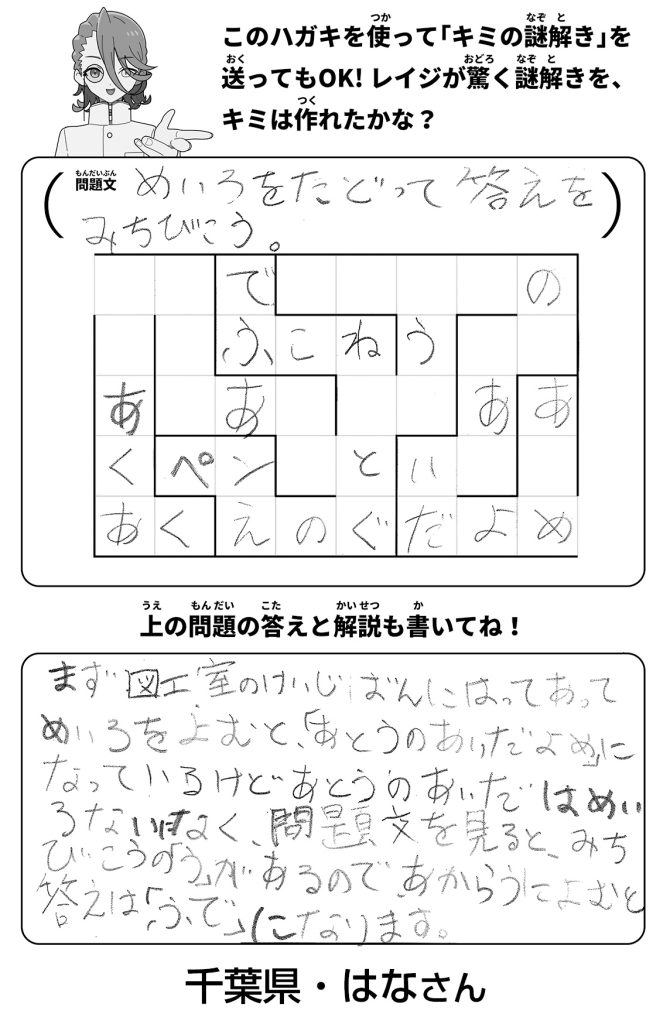 このハガキを使って「キミの謎解き」を
送ってもOK! レイジが驚く謎解きを、
キミは作れたかな？
問題文 めいろをたどって答えを
みちびこう。
で の
ふ こ ね う
あ あ あ あ
く ペ ン と い
あ く え の ぐ だ よ め
上の問題の答えと解説も書いてね！
まず図工室のけいじばんにはってあって
めいろをよむと、「あとうのあいだよめ」に
なっているけどあとうのあいだはめい
ろない
なく、問題文を見ると、みち
びこうの「う」があるのであからうによむと
答えは「ふで」になります。
千葉県・はなさん